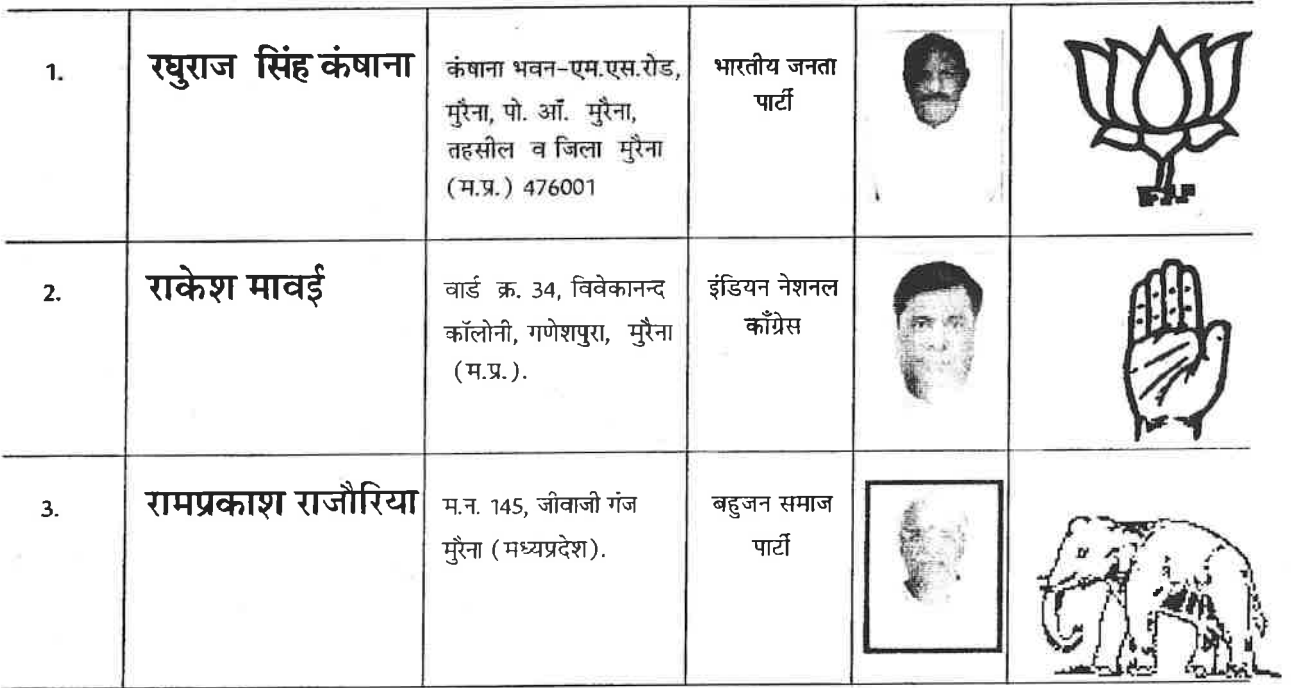 1.
रघुराज सिंह कंषाना
कंषाना भवन-एम.एस.रोड,
मुरैना, पो. ऑ. मुरैना,
तहसील व जिला मुरैना
(म.प्र.) 476001
भारतीय जनता
पार्टी
2.
राकेश मावई
वार्ड क्र. 34, विवेकानन्द
कॉलोनी, गणेशपुरा, मुरैना
(म.प्र.).
इंडियन नेशनल
काँग्रेस
3.
रामप्रकाश राजौरिया
म.न. 145, जीवाजी गंज
मुरैना (मध्यप्रदेश).
बहुजन समाज
पार्टी